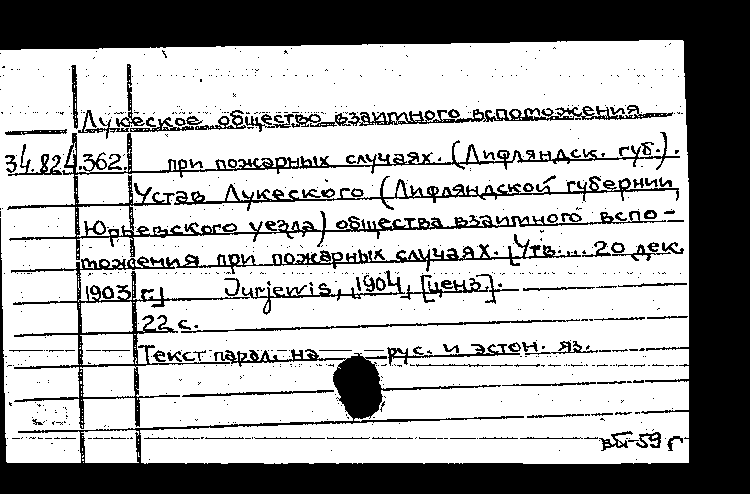 Лукеское общество взаимного вспоможения
34.824.362. при пожарных случаях. (Лифляндск. губ.).
Устав Лукеского (Лифляндской губернии,
Юрьевского уезда) общества взаимного вспо-
можения при пожарных случаях. [Утв.... 20 дек.
1903 г.] Jurjewis, 1904, [ценз.].
22 с.
Текст парал. на рус. и эстон. яз.